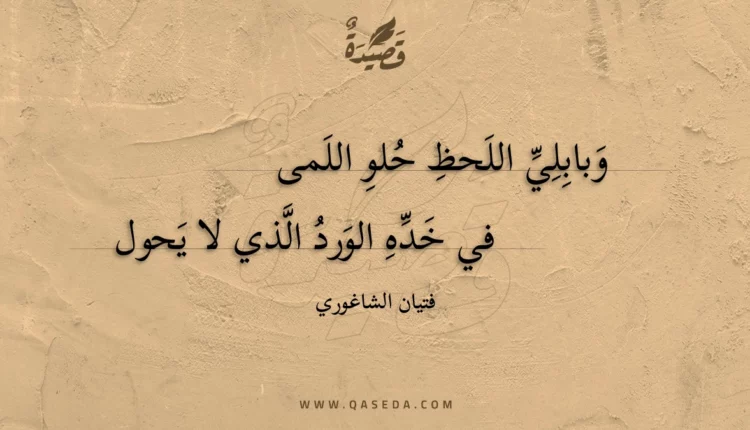 قَصِيْدَةٌ
وَبابِلِيِّ اللَحظِ حُلوِ اللَمى
في خَدِّهِ الوَردُ الَّذي لا يَحول
فتيان الشاغوري
WWW.QASEDA.COM